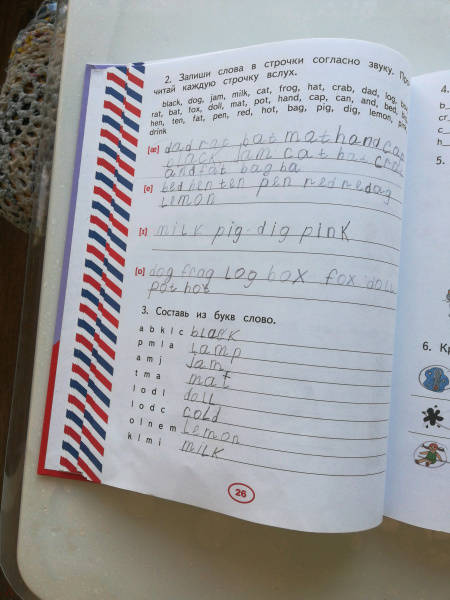 2. Запиши слова в строчки согласно звуку.
читай каждую строчку вслух.
black, dog, jam, milk, cat, frog, hat, crab, dad, log,
rat, bat, fox, doll, mat, pot, hand, cap, can, and, bed,
hen, ten, fat, pen, red, hot, bag, pig, dig, lemon,
drink
[æ] dad rat bat mat hand cap
black jam cat hat
and fat bag
[e] bed hen ten pen red
lemon
[ɪ] milk pig dig pink
[ɒ] dog frog log box fox doll
pot hot
3. Составь из букв слово.
a b k l c black
p m l a lamp
a m j jam
t m a mat
l o d l doll
l o d c cold
o l n e m lemon
k l m i milk
26
4.
5.
6.